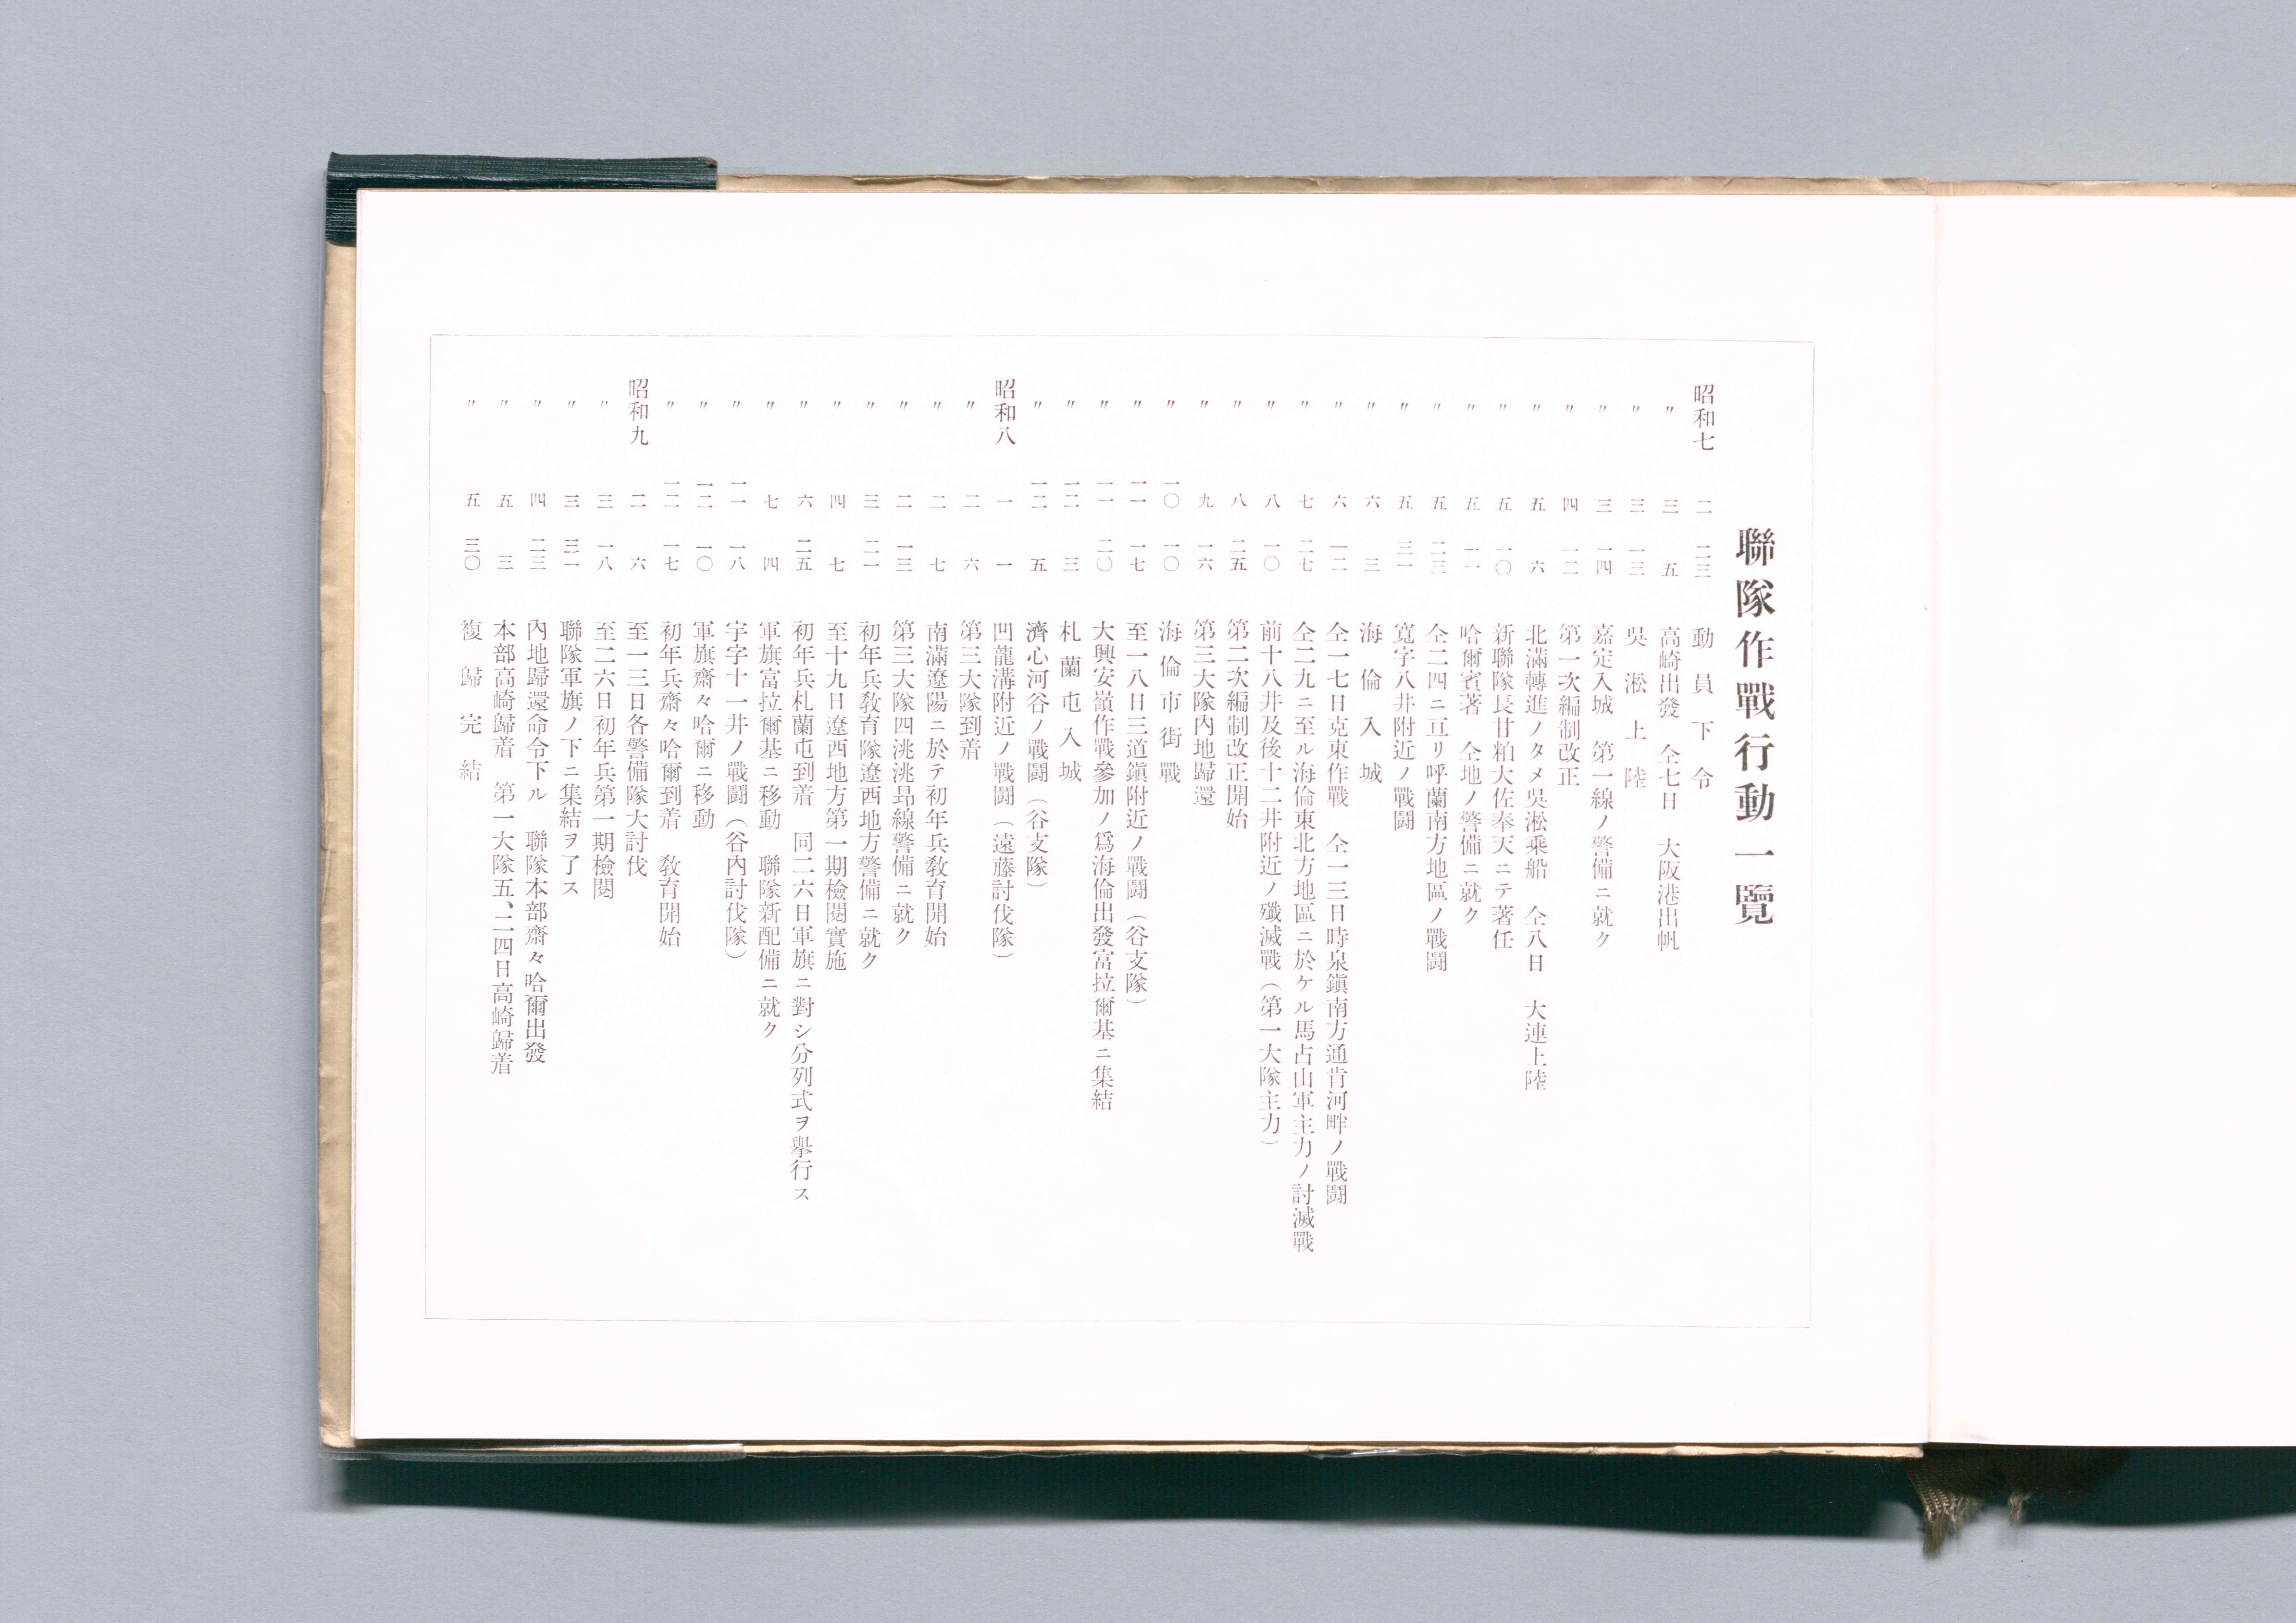 聯隊作戰行動一覽
昭和七 二 二三 動員下令
〃 三 五 高崎出發 仝七日 大阪港出帆
〃 三 一三 吳淞上陸
〃 三 一四 嘉定入城 第一線ノ警備ニ就ク
〃 四 一二 第一次編制改正
〃 五 六 北滿轉進ノタメ吳淞乘船 仝八日 大連上陸
〃 五 一〇 新聯隊長甘粕大佐奉天ニテ著任
〃 五 一一 哈爾賓著 仝地ノ警備ニ就ク
〃 五 二三 仝二四ニ亘リ呼蘭南方地區ノ戰鬪
〃 五 三一 寬字八井附近ノ戰鬪
〃 六 三 海倫入城
〃 六 一二 仝一七日克東作戰 仝一三日時泉鎭南方通肯河畔ノ戰鬪
〃 七 二七 仝二九ニ至ル海倫東北方地區ニ於ケル馬占山軍主力ノ討滅戰
〃 八 一〇 前十八井及後十二井附近ノ殲滅戰（第一大隊主力）
〃 八 二五 第二次編制改正開始
〃 九 一六 第三大隊內地歸還
〃 一〇 一〇 海倫市街戰
〃 一一 一七 至一八日三道鎭附近ノ戰鬪（谷支隊）
〃 一一 二〇 大興安嶺作戰參加ノ爲海倫出發富拉爾基ニ集結
〃 一二 三 札蘭屯入城
〃 一二 五 濟心河谷ノ戰鬪（谷支隊）
昭和八 一 一 凹龍溝附近ノ戰鬪（遠藤討伐隊）
〃 二 六 第三大隊到着
〃 二 七 南滿遼陽ニ於テ初年兵敎育開始
〃 二 一三 第三大隊四洮洮昻線警備ニ就ク
〃 三 二一 初年兵敎育隊遼西地方警備ニ就ク
〃 四 七 至十九日遼西地方第一期檢閱實施
〃 六 二五 初年兵札蘭屯到着 同二六日軍旗ニ對シ分列式ヲ擧行ス
〃 七 四 軍旗富拉爾基ニ移動 聯隊新配備ニ就ク
〃 一一 一八 宇字十一井ノ戰鬪（谷內討伐隊）
〃 一二 一〇 軍旗齋々哈爾ニ移動
〃 一二 一七 初年兵齋々哈爾到着 敎育開始
昭和九 二 六 至一三日各警備隊大討伐
〃 三 一八 至二六日初年兵第一期檢閱
〃 三 三一 聯隊軍旗ノ下ニ集結ヲ了ス
〃 四 二三 內地歸還命令下ル 聯隊本部齋々哈爾出發
〃 五 三 本部高崎歸着 第一大隊五、二四日高崎歸着
〃 五 三〇 複歸完結